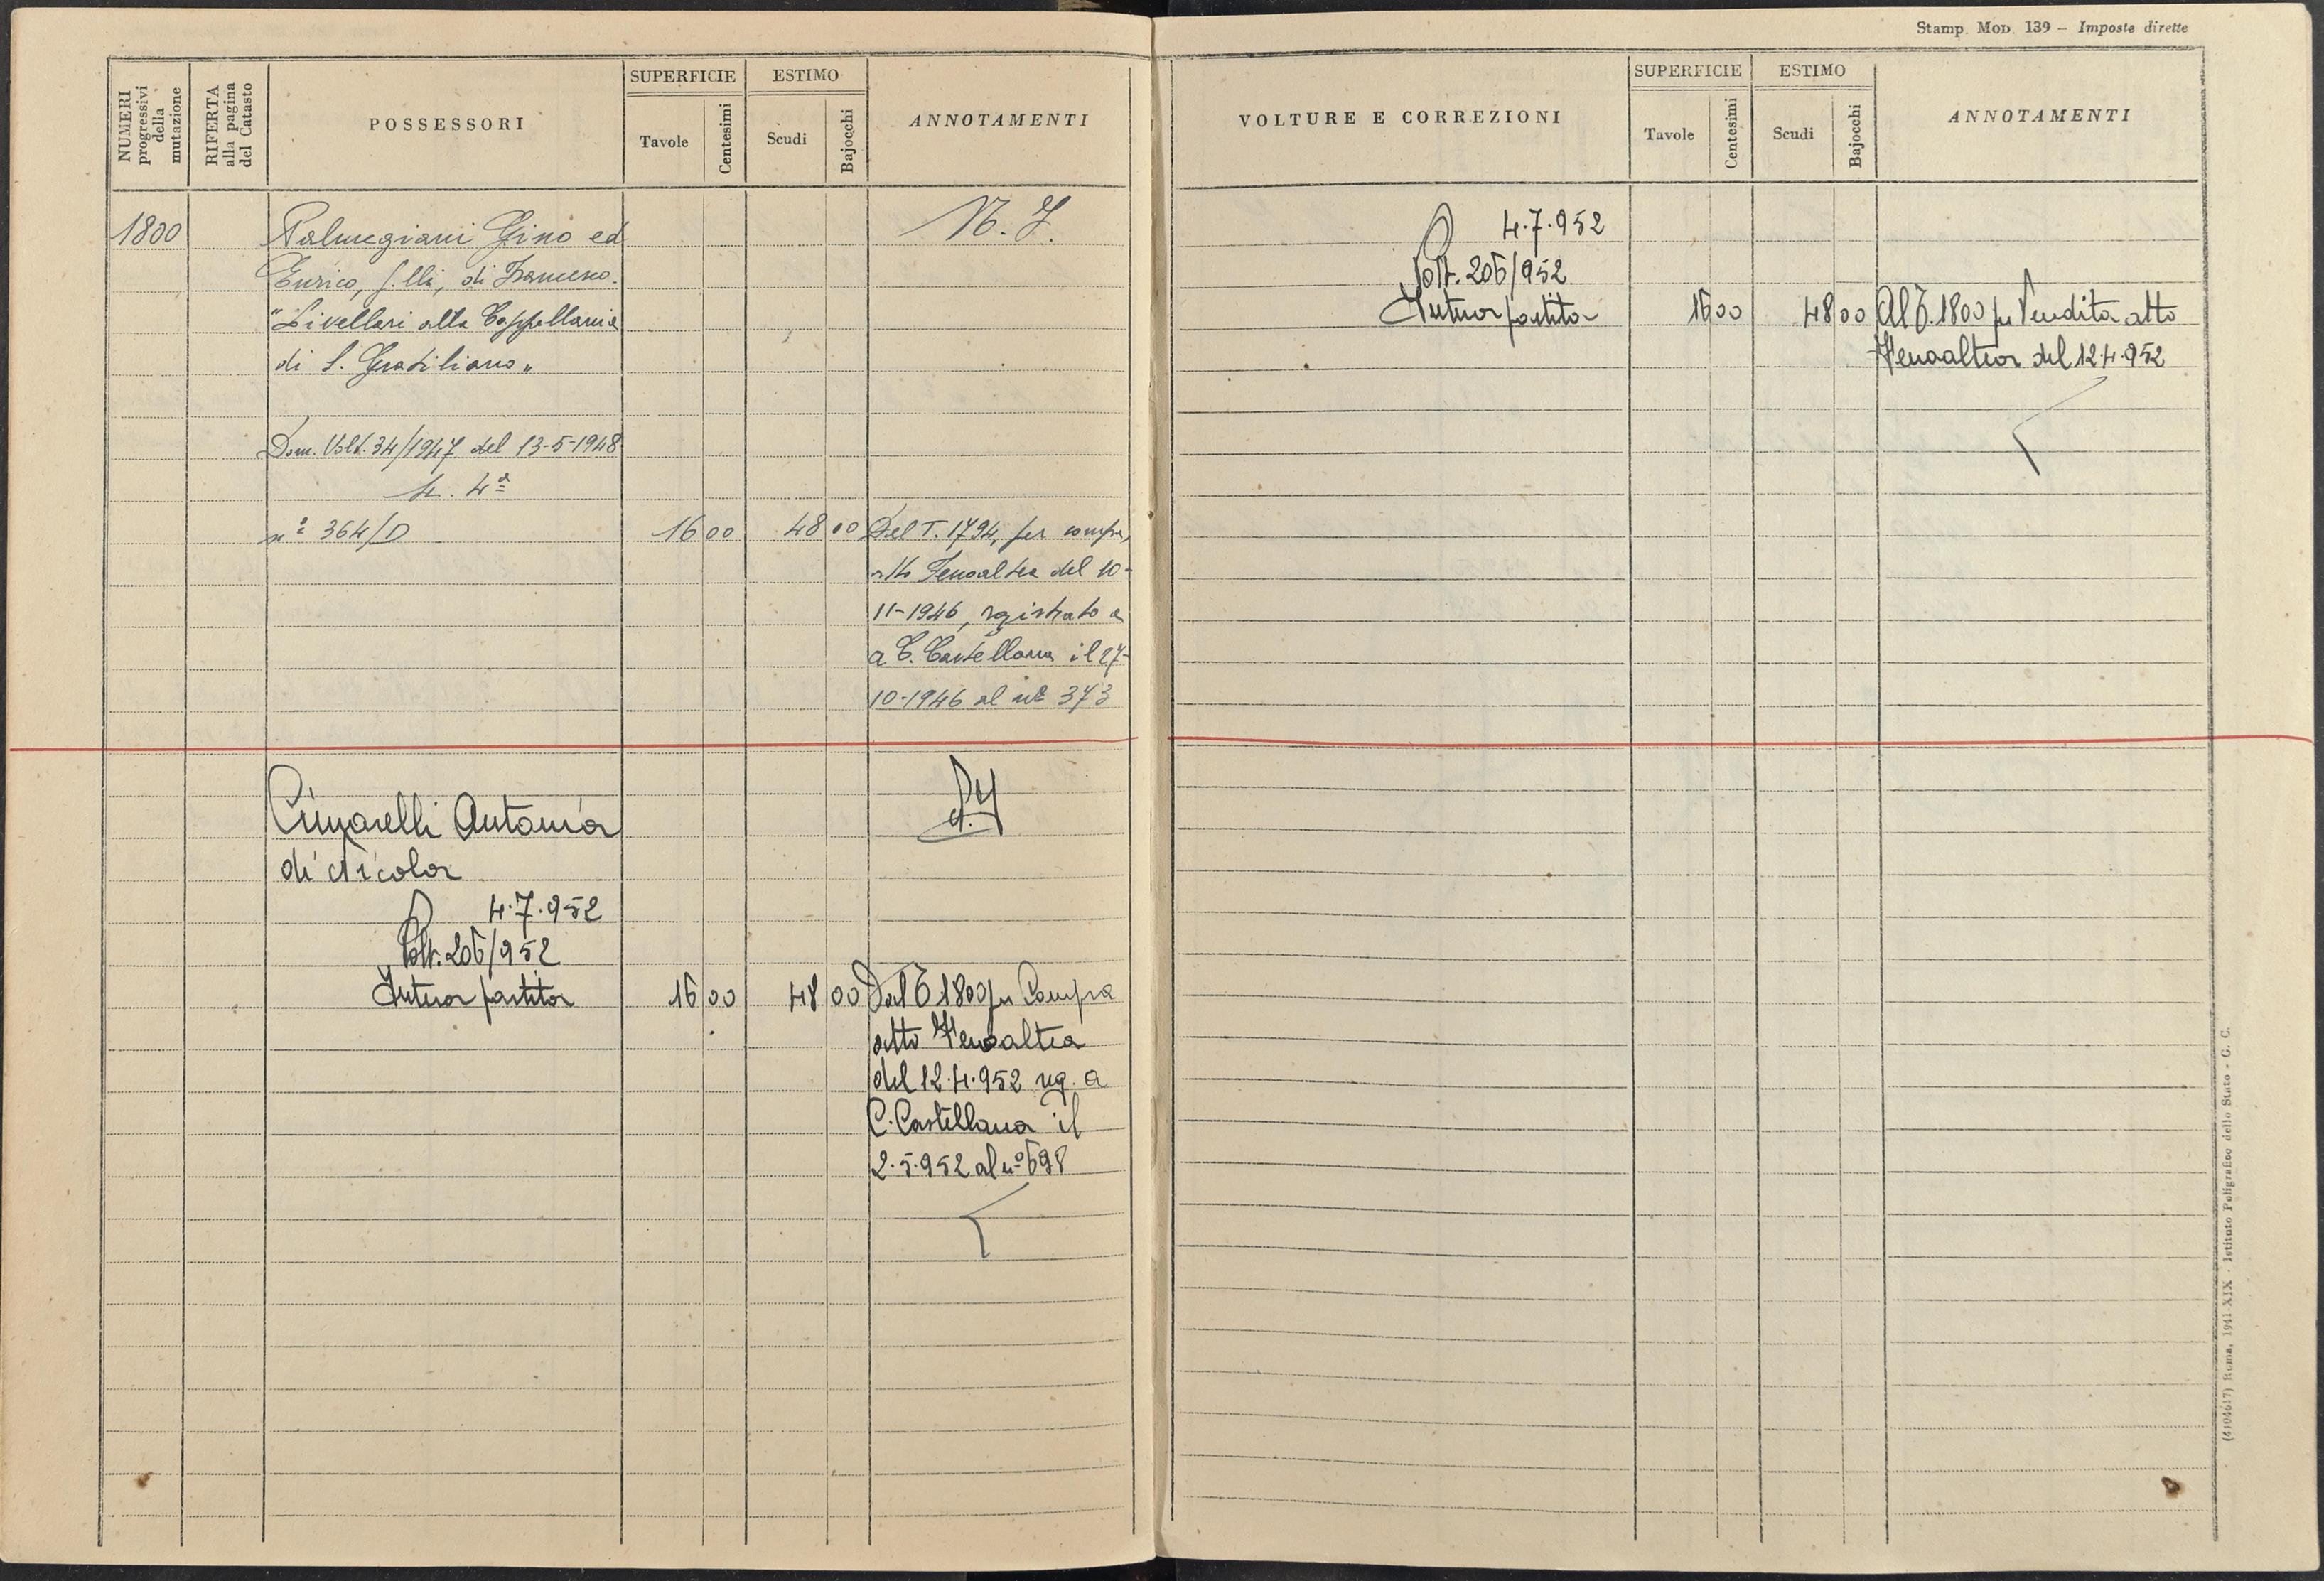 NUMERI progressivi della mutazione
RIFERTA alla pagina del Catasto
POSSESSORI
SUPERFICIE
Tavole
Centesimi
ESTIMO
Scudi
Bajocchi
ANNOTAMENTI
1800
Palmegiani Gino ed
Enrico, f.lli, di
"Livellari alla Cappellania
di S. Gratiliano"
Dom. Volt. 34/1947 del 13-5-1948
n° 364/D
16 00
48 00
Del T. 1794, per compra,
atto Fenoaltea del 10-
11-1946, registrato a
a C. Castellana il 27-
10-1946 al n° 373
Cimarelli Antonia
di Nicola
4.7.952
Volt. 206/952
Intera partita
16 00
48 00
Dal T 1800 per Compra
atto Fenoaltea
del 12.4.952 reg. a
C. Castellana il
2.5.952 al n° 698
Stamp. Mod. 139 – Imposte dirette
VOLTURE E CORREZIONI
SUPERFICIE
Tavole
Centesimi
ESTIMO
Scudi
Bajocchi
ANNOTAMENTI
4.7.952
Volt. 206/952
Intera partita
16 00
48 00
Al T. 1800 per Vendita atto
Fenoaltea del 12.4.952
Roma, 1941-XIX - Istituto Poligrafico dello Stato - G. C.